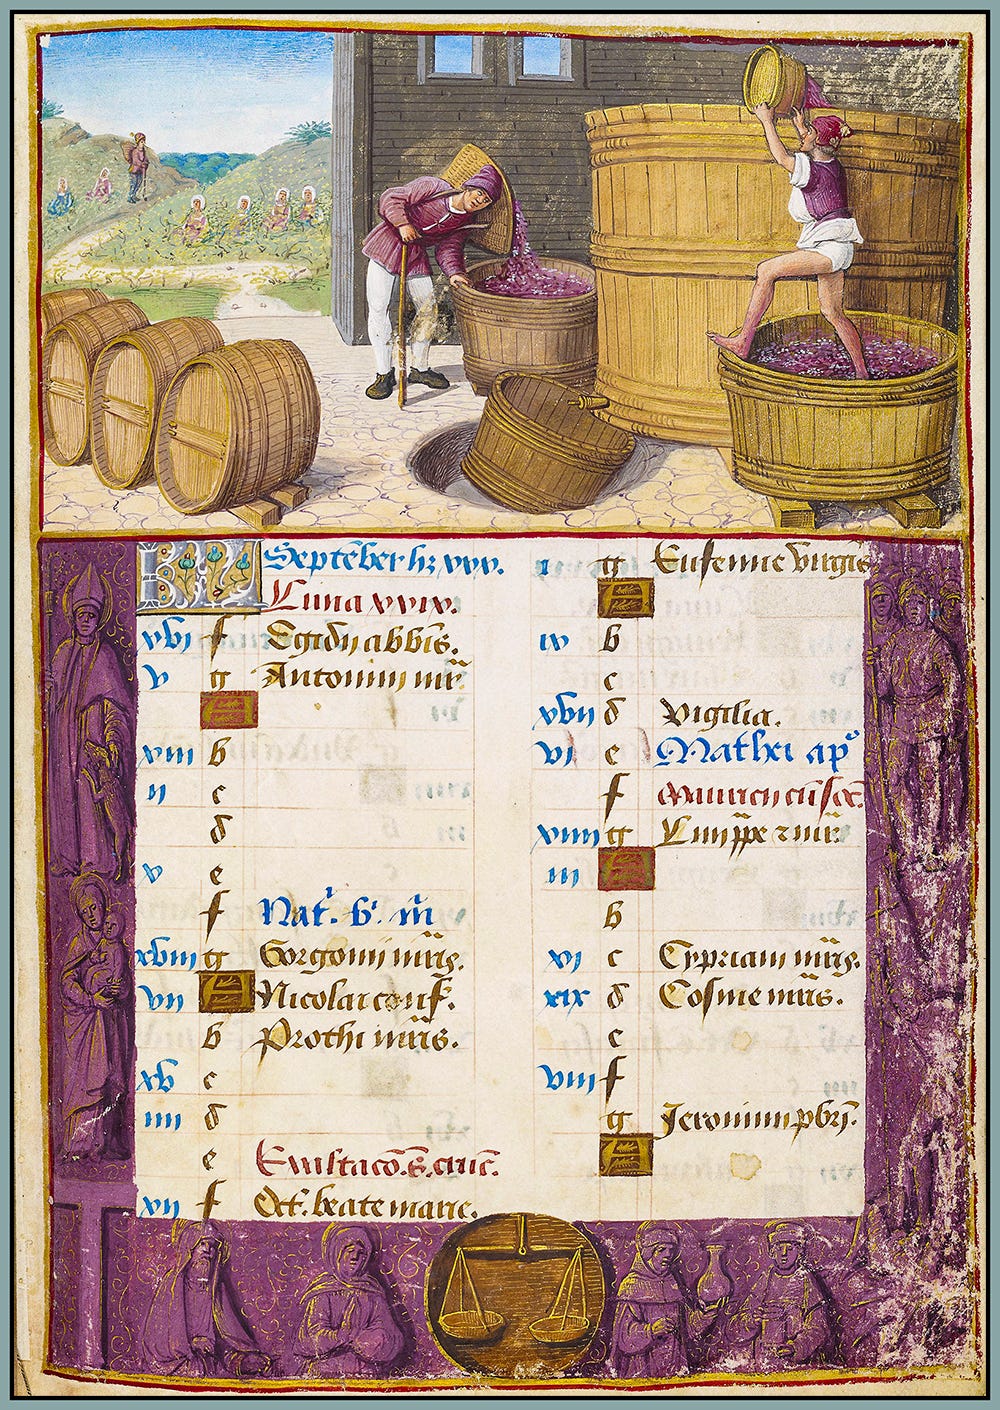 KL Septēber hz xxx.
Luna xxix.
xvi f Egidii abbis.
v g Antonini mr
A
xiii b
ii c
d
x e
f Nat. b. m
xviii g Gorgonii mris.
vii A Nicolai conf.
b Prothi mris.
xv c
iiii d
e Exaltacō. s. cruc.
xii f Oct. beate marie.
i g Eufemie virgis
A
ix b
c
xvii d Vigilia.
vi e Mathei apo
f Mauricii cū soc.
xiiii g
iii A
b
xi c Cypriani mris.
xix d Cosme mris.
e
viii f
g Jeronimi pbri.
A